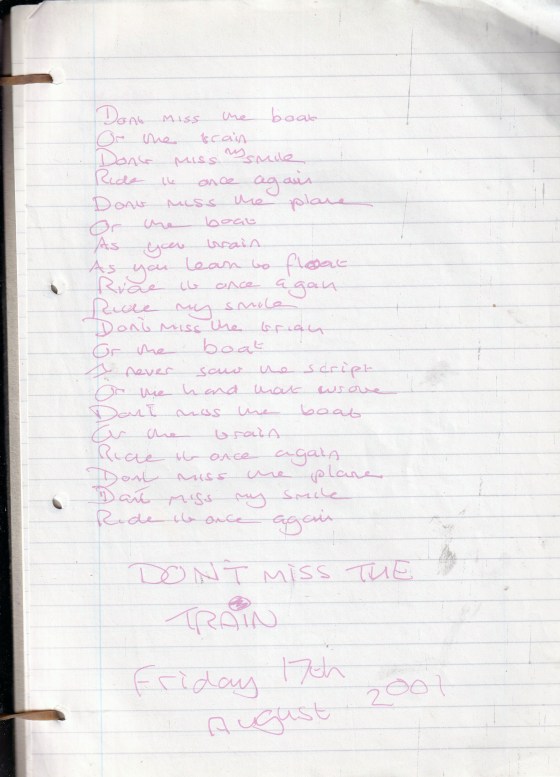 Dont miss the boat
Or the train
Dont miss my smile
Ride it once again
Dont miss the plane
Or the boat
As you train
As you learn to float
Ride it once again
Ride my smile
Don't miss the trian
Or the boat
I never saw the script
Or the hand that wrote
Don't miss the boat
Or the train
Ride it once again
Dont miss the plane
Don't miss my smile
Ride it once again
DON'T MISS THE
TRAIN
Friday 17th
August 2001